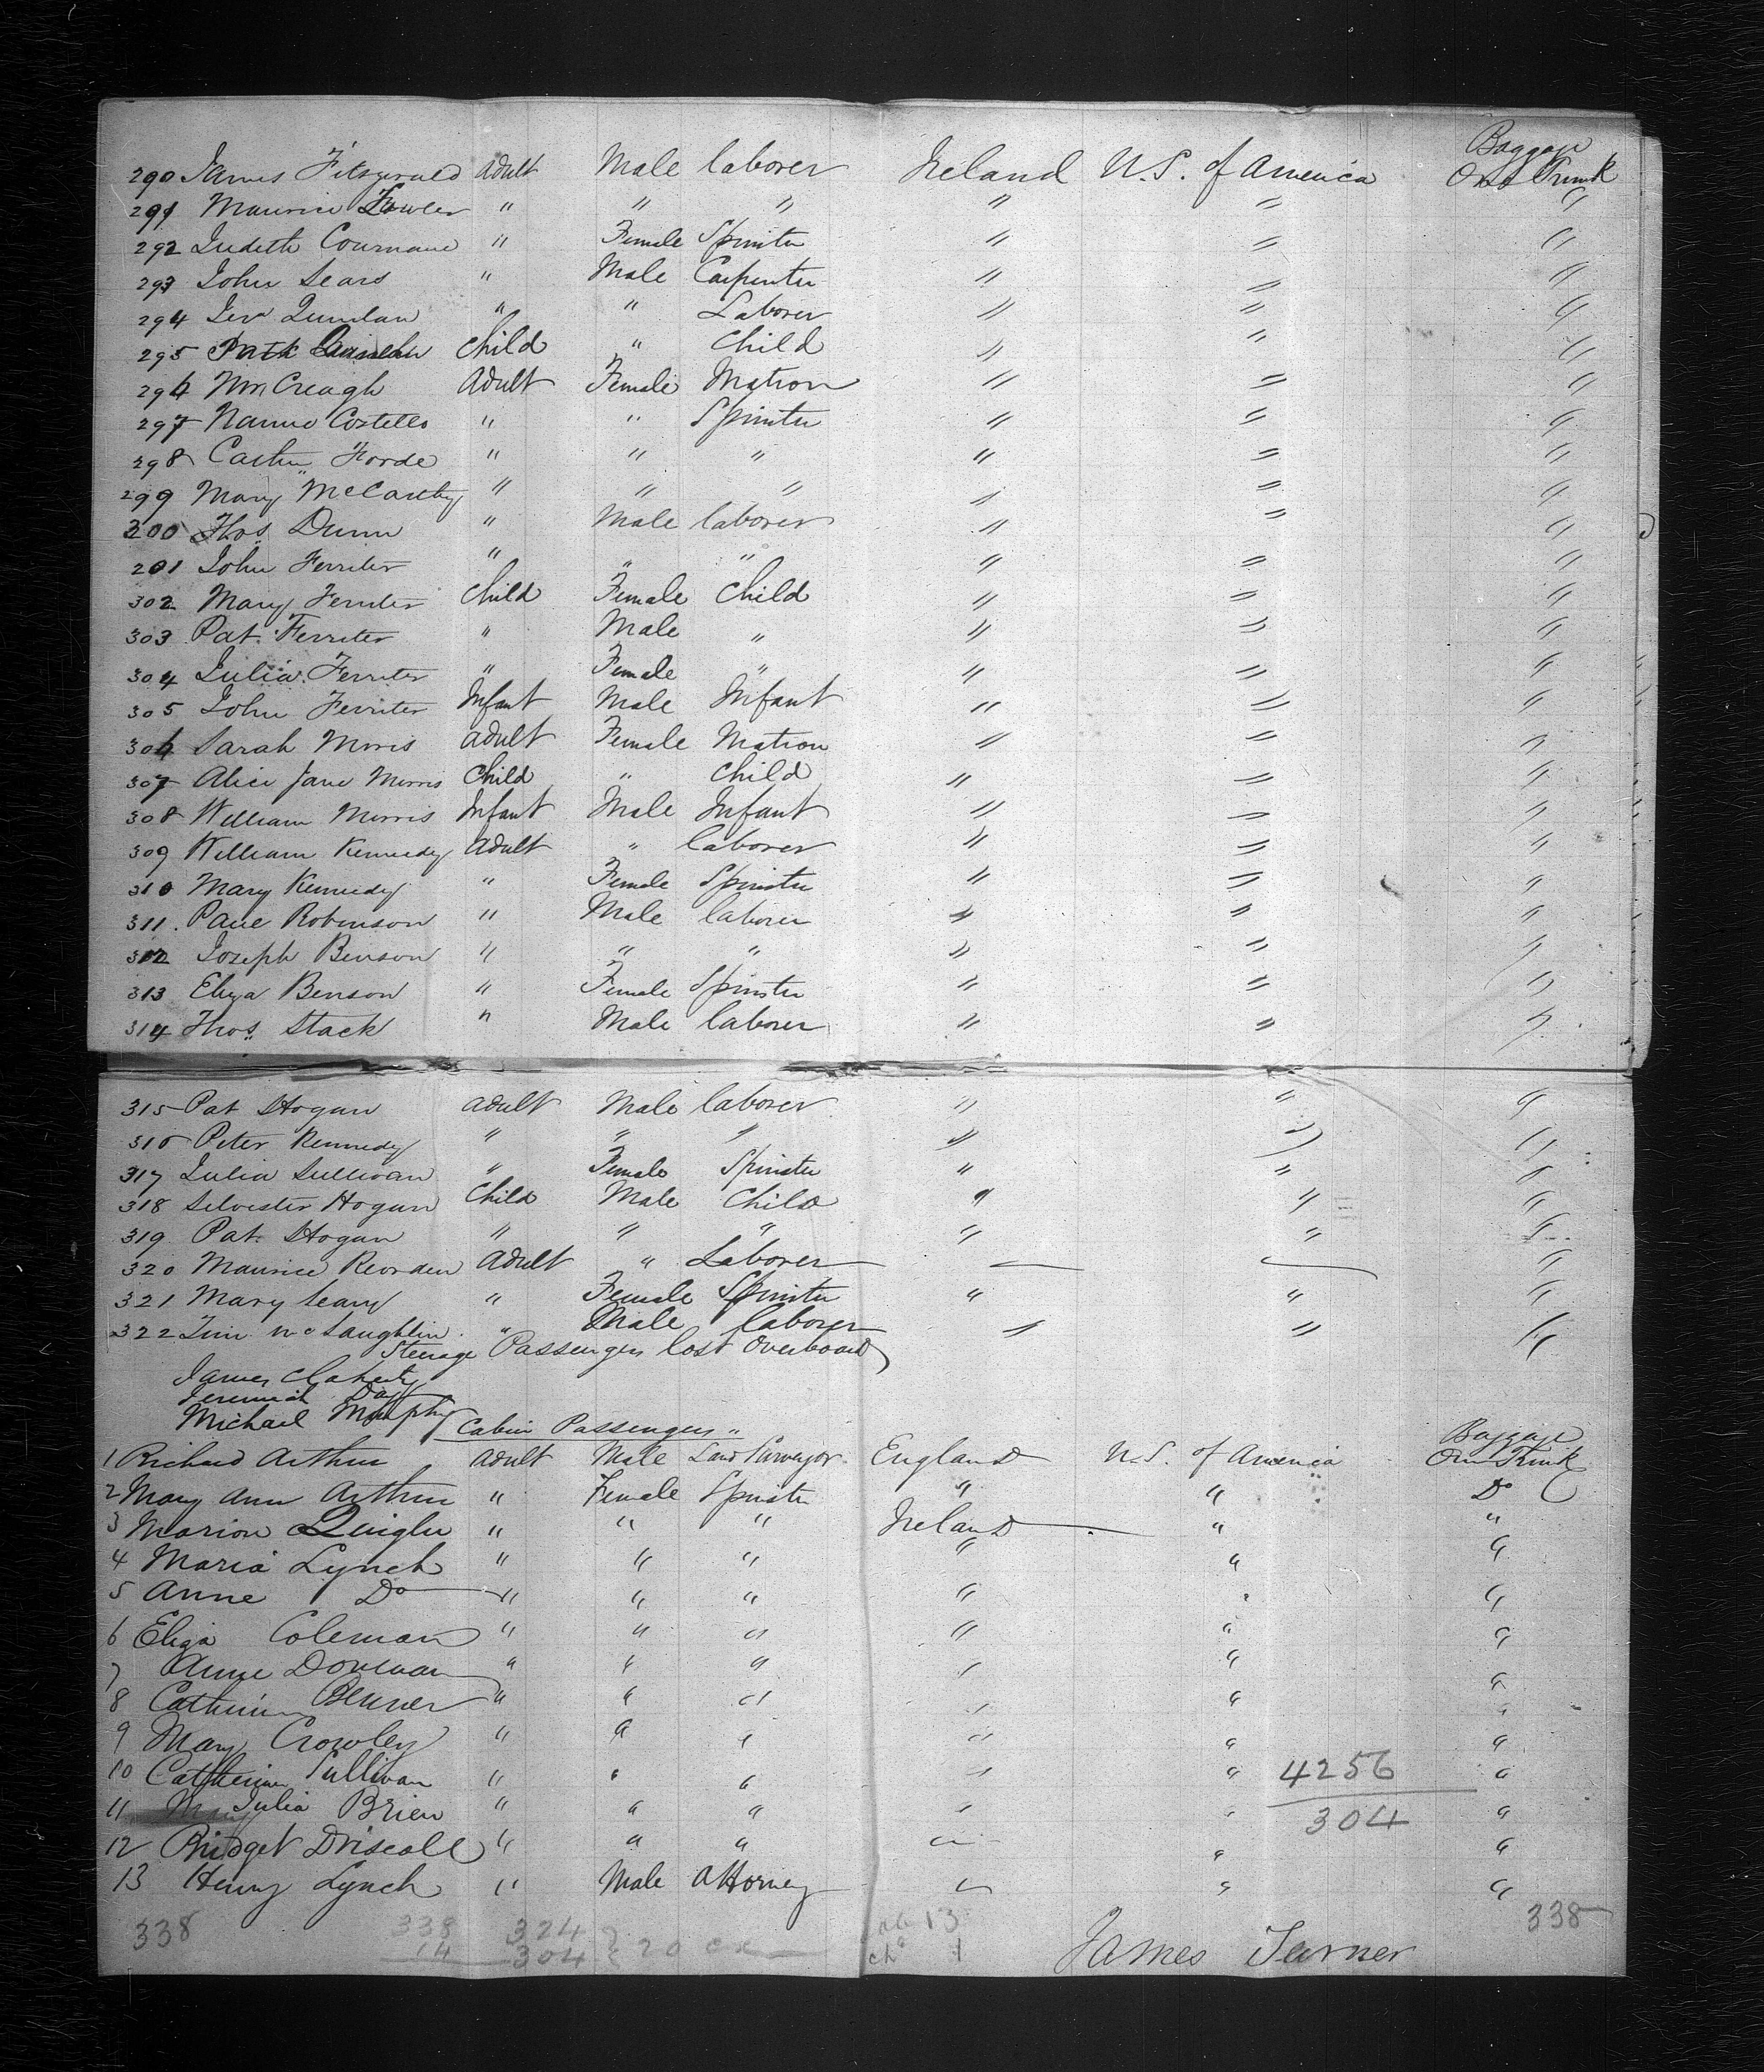 Baggage
290 James Fitzgerald adult Male laborer Ireland U.S. of America One Trunk
291 Maurice Fowler " " " " " "
292 Judeth Cournane " Female Spinster " " "
293 John Sears " Male Carpenter " " "
294 Jer Quinlan " " Laborer " " "
295 Patk child " Child " " "
296 Wm Creagh Adult Female Matron " " "
297 Nanno Costello " " Spinster " " "
298 Cathn Forde " " " " " "
299 Mary McCarthy " " " " " "
300 Thos Dunn " Male laborer " " "
201 John Ferriter " " " " " "
302 Mary Ferriter Child Female Child " " "
303 Pat. Ferriter " Male " " " "
304 Julia Ferriter " Female " " " "
305 John Ferriter Infant Male Infant " " "
306 Sarah Morris adult Female Matron " " "
307 Alice Jane Morris Child " Child " " "
308 William Morris Infant Male Infant " " "
309 William Kennedy Adult " laborer " " "
310 Mary Kennedy " Female Spinster " " "
311. Robinson " Male laborer " " "
312 Joseph Benson " " " " " "
313 Eliza Benson " Female Spinster " " "
314 Thos Stack " Male laborer " " "
315 Pat Hogan adult Male laborer " " "
316 Peter Kennedy " " " " " "
317 Julia Sullivan " Female Spinster " " "
318 Silvester Hogan Child Male Child " " "
319 Pat. Hogan " " " " " "
320 Maurice Reorden Adult " Laborer — — "
321 Mary Leary " Female Spinster " " "
322 Tim McLaughlin " Male laborer " " "
Steerage Passengers lost Overboard
James Claherty
Jeremiah Daly
Michael Murphy
Cabin Passengers " Baggage
1 Richard Arthur Adult Male Land Surveyor England U.S. of America One Trunk
2 Mary Ann Arthur " Female Spinster " " Do
3 Marion " " " Ireland " "
4 Maria Lynch " " " " " "
5 Anne Do " " " " " "
6 Eliza Coleman " " " " " "
7 Anne Donovan " " " " " "
8 Catherine Benner " " " " " "
9 Mary Crowley " " " " " "
10 Catherine Sullivan " " " " " "
4256
11 Julia Brien " " " " " "
304
12 Bridget Driscoll " " " " " "
13 Henry Lynch " Male Attorney " " "
338 338 324 13 338
14 304 20 1 James Turner